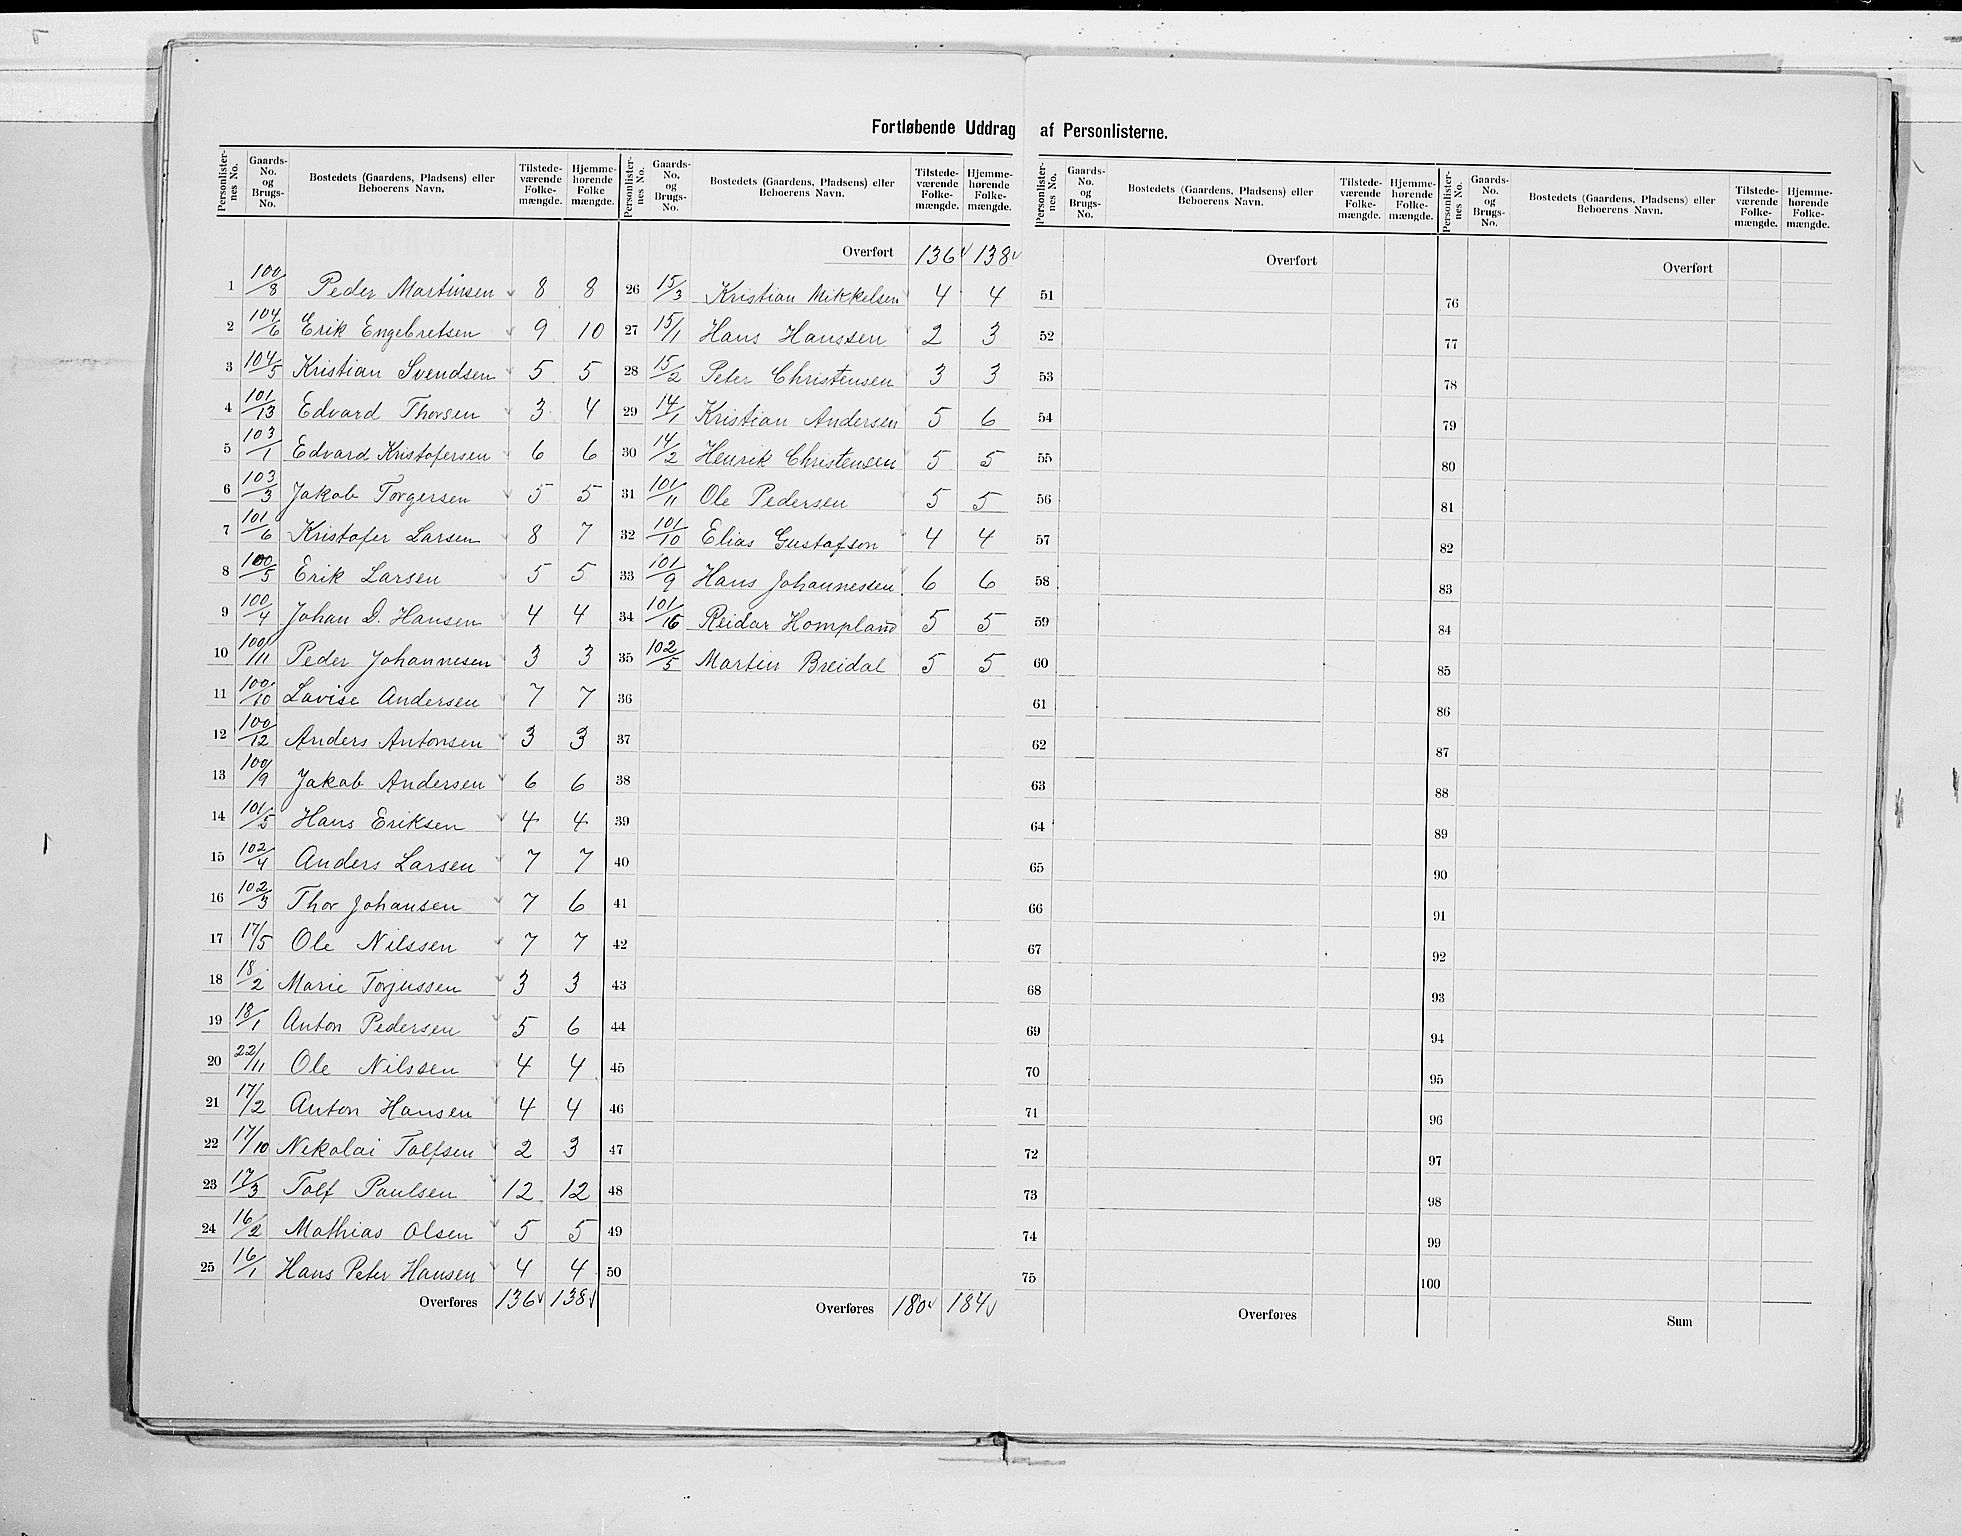 Fortløbende Uddrag af Personlisterne.
Personlisternes No. Gaards-No. og Brugs-No. Bostedets (Gaardens, Pladsens) eller Beboerens Navn. Tilstedeværende Folkemængde. Hjemmehørende Folkemængde.
1 100/8 Peder Martinsen 8 8
2 104/6 Erik Engebretsen 9 10
3 104/5 Kristian Svendsen 5 5
4 101/13 Edvard Thorsen 3 4
5 103/1 Edvard Kristofersen 6 6
6 103/3 Jakob Torgersen 5 5
7 101/6 Kristofer Larsen 8 7
8 100/5 Erik Larsen 5 5
9 100/4 Johan D. Hansen 4 4
10 100/11 Peder Johannesen 3 3
11 100/10 Lovise Andersen 7 7
12 100/12 Anders Antonsen 3 3
13 100/9 Jakob Andersen 6 6
14 101/5 Hans Eriksen 4 4
15 102/4 Anders Larsen 7 7
16 102/3 Thor Johansen 7 6
17 17/5 Ole Nilssen 7 7
18 18/2 Marie Torjussen 3 3
19 18/1 Anton Pedersen 5 6
20 22/11 Ole Nilssen 4 4
21 17/2 Anton Hansen 4 4
22 17/10 Nikolai Tolfsen 2 3
23 17/3 Tolf Paulsen 12 12
24 16/2 Mathias Olsen 5 5
25 16/1 Hans Peter Hansen 4 4
Overføres 136 138
Personlisternes No. Gaards-No. og Brugs-No. Bostedets (Gaardens, Pladsens) eller Beboerens Navn. Tilstedeværende Folkemængde. Hjemmehørende Folkemængde.
Overført 136 138
26 15/3 Kristian Mikkelsen 4 4
27 15/1 Hans Hanssen 2 3
28 15/2 Peter Christensen 3 3
29 14/1 Kristian Andersen 5 6
30 14/2 Henrik Christensen 5 5
31 101/11 Ole Pedersen 5 5
32 101/10 Elias Gustafson 4 4
33 101/9 Hans Johannessen 6 6
34 101/16 Reidar Hompland 5 5
35 102/5 Martin Breidal 5 5
36
37
38
39
40
41
42
43
44
45
46
47
48
49
50
Overføres 180 184
Personlisternes No. Gaards-No. og Brugs-No. Bostedets (Gaardens, Pladsens) eller Beboerens Navn. Tilstedeværende Folkemængde. Hjemmehørende Folkemængde.
Overført
51
52
53
54
55
56
57
58
59
60
61
62
63
64
65
66
67
68
69
70
71
72
73
74
75
Overføres
Personlisternes No. Gaards-No. og Brugs-No. Bostedets (Gaardens, Pladsens) eller Beboerens Navn. Tilstedeværende Folkemængde. Hjemmehørende Folkemængde.
Overført
76
77
78
79
80
81
82
83
84
85
86
87
88
89
90
91
92
93
94
95
96
97
98
99
100
Sum